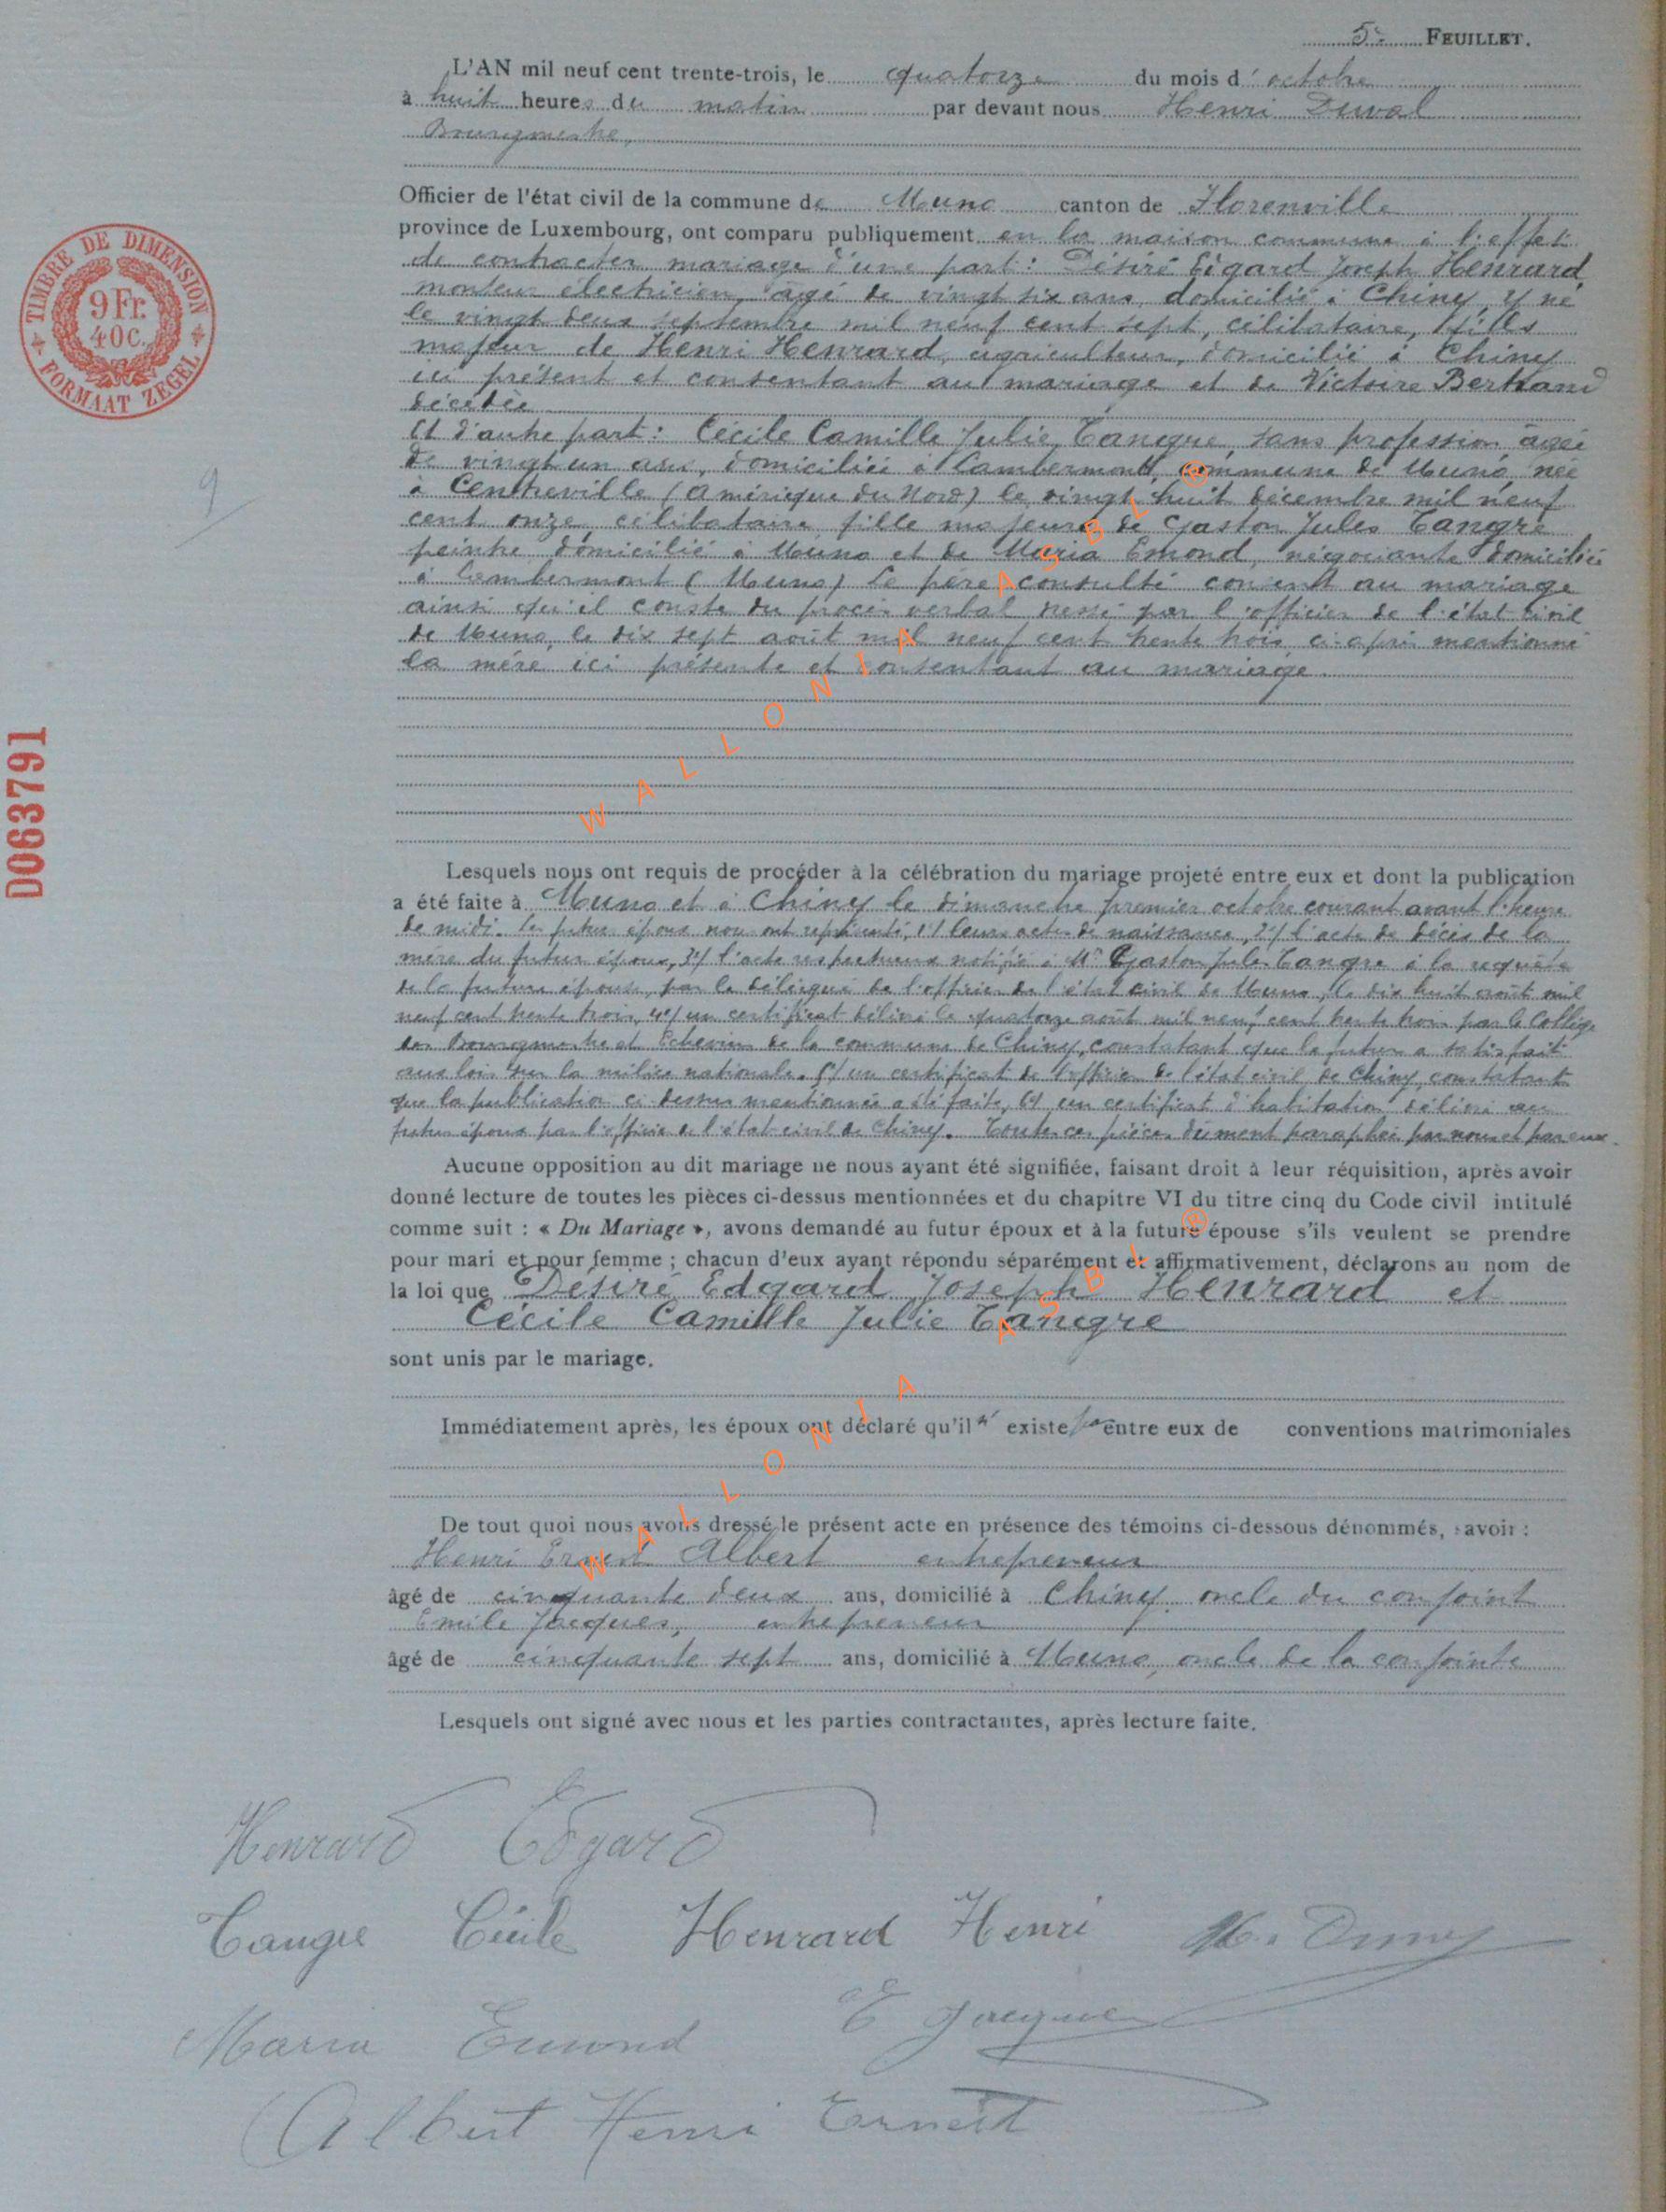 5e FEUILLET.
L'AN mil neuf cent trente-trois, le quatorze du mois d'octobre
à huit heures du matin par devant nous Henri Duval
Bourgmestre,
Officier de l'état civil de la commune de Muno canton de Florenville
province de Luxembourg, ont comparu publiquement en la maison commune à l'effet
de contracter mariage d'une part: Désiré Edgard Joseph Henrard,
monteur électricien, âgé de vingt six ans, domicilié à Chiny, y né
le vingt deux septembre mil neuf cent sept, célibataire, fils
majeur de Henri Henrard, agriculteur, domicilié à Chiny
ici présent et consentant au mariage et de Victoire Bertrand
décédée
Et d'autre part: Cécile Camille Julie Tangre, sans profession âgée
de vingt un ans, domiciliée à Lambermont, commune de Muno née
à Centreville (Amérique du Nord) le vingt huit décembre mil neuf
cent onze célibataire, fille majeure de Gaston Jules Tangre
peintre domicilié à Muno et de Maria Emond, négociante domiciliée
à Lambermont (Muno) Le père consulté consent au mariage
ainsi qu'il conste du procès verbal dressé par l'officier de l'état civil
de Muno, le dix sept août mil neuf cent trente trois, ci-après mentionné
la mère ici présente et consentant au mariage.
Lesquels nous ont requis de procéder à la célébration du mariage projeté entre eux et dont la publication
a été faite à Muno et à Chiny le dimanche premier octobre courant avant l'heure
de midi. Les futurs époux nous ont représenté, 1°/ leurs actes de naissance, 2°/ l'acte de décès de la
mère du futur époux, 3°/ l'acte respectueux notifié à Mr Gaston Jules Tangre à la requête
de la future épouse, par le délégué de l'officier de l'état civil de Muno, le dix huit août mil
neuf cent trente trois, 4°/ un certificat délivré le quatorze août mil neuf cent trente trois par le Collège
des Bourgmestre et Echevins de la commune de Chiny, constatant que le futur a satisfait
aux lois sur la milice nationale. 5°/ un certificat de l'officier de l'état civil de Chiny, constatant
que la publication ci-dessus mentionnée a été faite, 6°/ un certificat d'habitation délivré au
futur époux par l'officier de l'état civil de Chiny. Toutes ces pièces dûment paraphées par nous et par eux.
Aucune opposition au dit mariage ne nous ayant été signifiée, faisant droit à leur réquisition, après avoir
donné lecture de toutes les pièces ci-dessus mentionnées et du chapitre VI du titre cinq du Code civil intitulé
comme suit : « Du Mariage », avons demandé au futur époux et à la future épouse s'ils veulent se prendre
pour mari et pour femme ; chacun d'eux ayant répondu séparément et affirmativement, déclarons au nom de
la loi que Désiré Edgard Joseph Henrard et
Cécile Camille Julie Tangre
sont unis par le mariage.
Immédiatement après, les époux ont déclaré qu'il n' existe pas entre eux de conventions matrimoniales
De tout quoi nous avons dressé le présent acte en présence des témoins ci-dessous dénommés, savoir :
Henri Ernest Albert entrepreneur
âgé de cinquante deux ans, domicilié à Chiny, oncle du conjoint
Emile Jacques, entrepreneur
âgé de cinquante sept ans, domicilié à Muno, oncle de la conjointe
Lesquels ont signé avec nous et les parties contractantes, après lecture faite.
Henrard Edgard
Tangre Cécile Henrard Henri H. Duval
Maria Emond E Jacques
Albert Henri Ernest
TIMBRE DE DIMENSION
9 Fr.
40 C.
FORMAAT ZEGEL
9
D063791
WALLONIA ASBL ®
WALLONIA ASBL ®